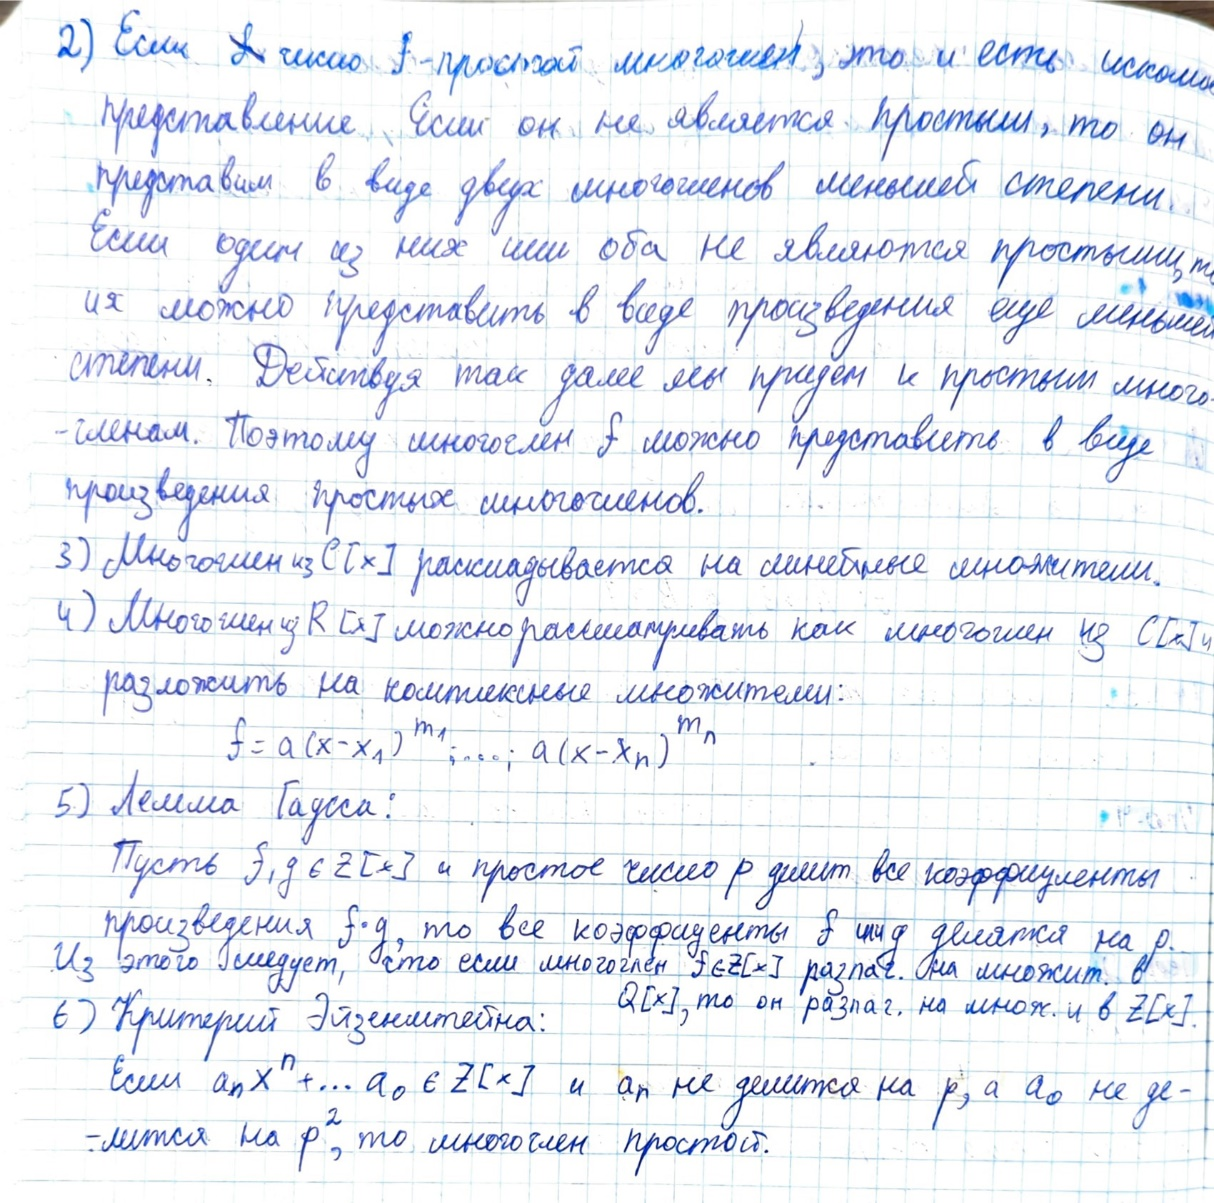 2) Если число f-простой многочлен, это и есть искомо
представление. Если он не является простым, то он
представим в виде двух многочленов меньшей степени.
Если один из них или оба не являются простыми, то
их можно представить в виде произведения еще меньшей
степени. Действуя так далее мы придем к простым много-
-членам. Поэтому многочлен f можно представить в виде
произведения простых многочленов.
3) Многочлен из C[x] раскладывается на линейные множители.
4) Многочлен из R[x] можно рассматривать как многочлен из C[x] и
разложить на комплексные множители:
f = a(x-x₁)^m₁; ...; a(x-xₙ)^mₙ
5) Лемма Гаусса:
Пусть f, g ∈ Z[x] и простое число p делит все коэффициенты
произведения f·g, то все коэффиденты f или g делятся на p.
Из этого следует, что если многочлен f∈Z[x] разлаг. на множит. в
Q[x], то он разлаг. на множ. и в Z[x].
6) Критерий Эйзенштейна:
Если aₙxⁿ+... a₀ ∈ Z[x] и aₙ не делится на p, а a₀ не де-
-лится на p², то многочлен простой.